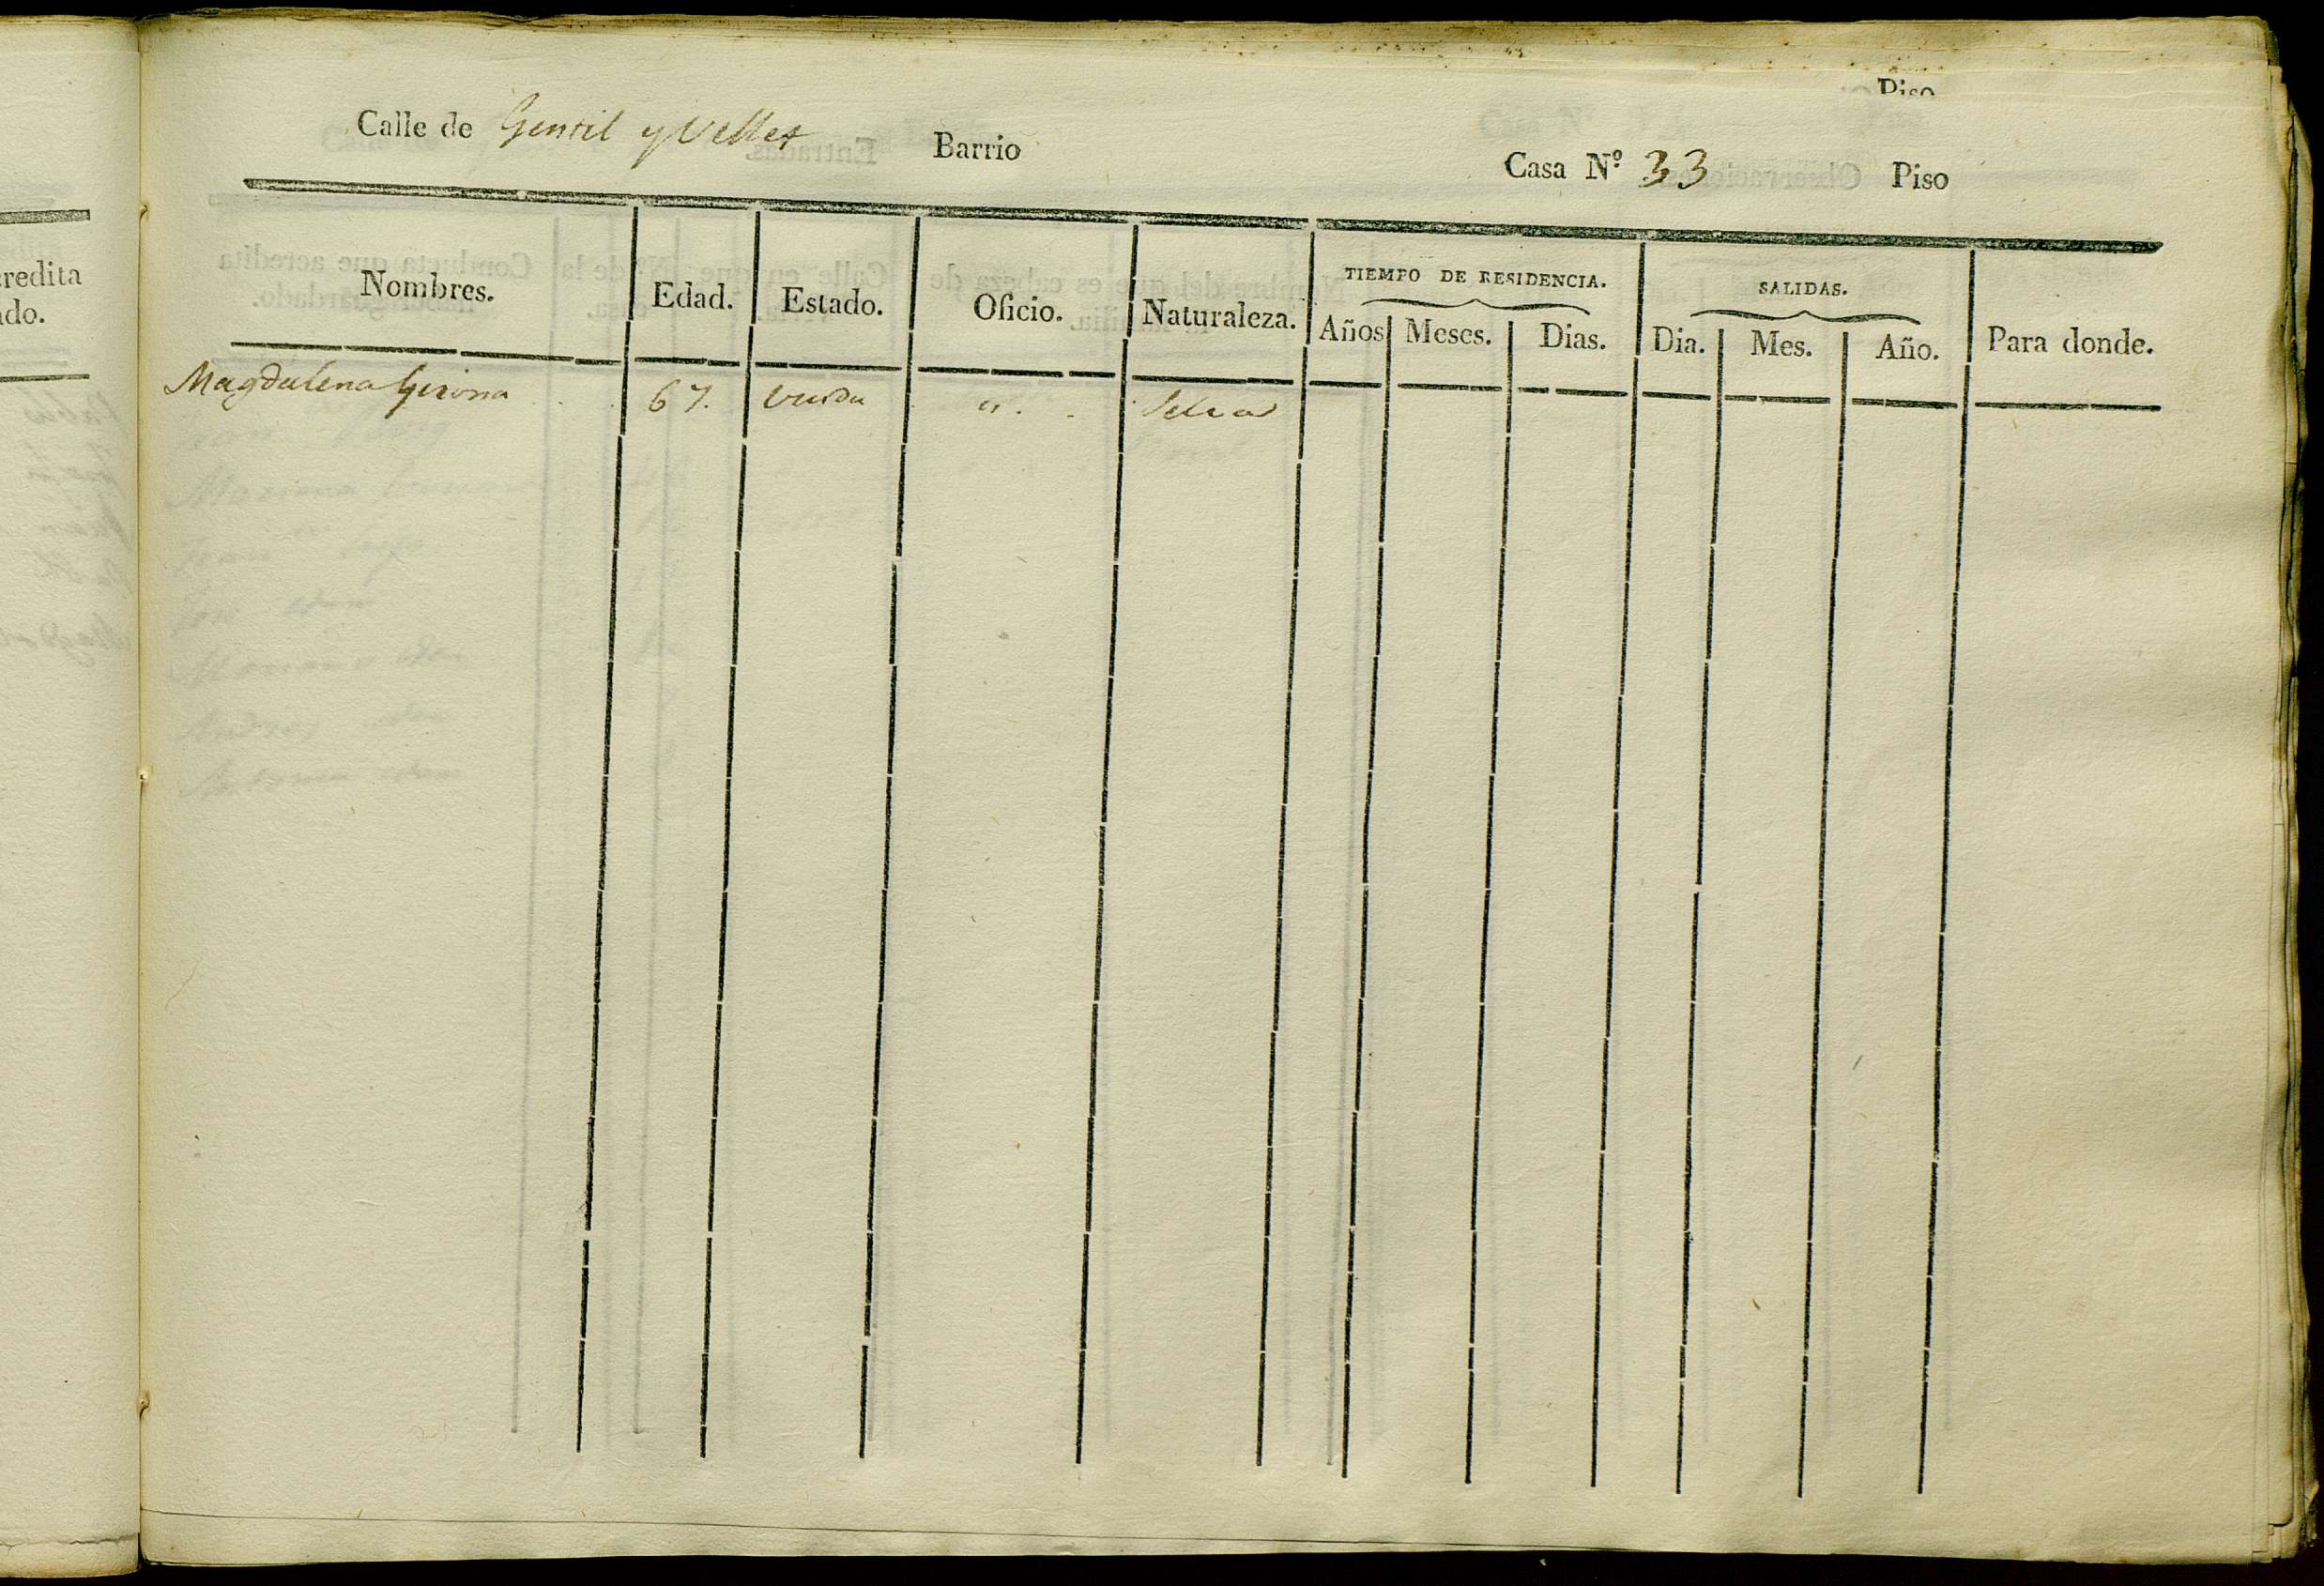 Piso
Calle de Gentil y Velles Barrio Casa Nº 33 Piso
Nombres. Edad. Estado. Oficio. Naturaleza. TIEMPO DE RESIDENCIA. Años Meses. Dias. SALIDAS. Dia. Mes. Año. Para donde.
Magdalena Girona 67. Viuda " Selva
credita
do.